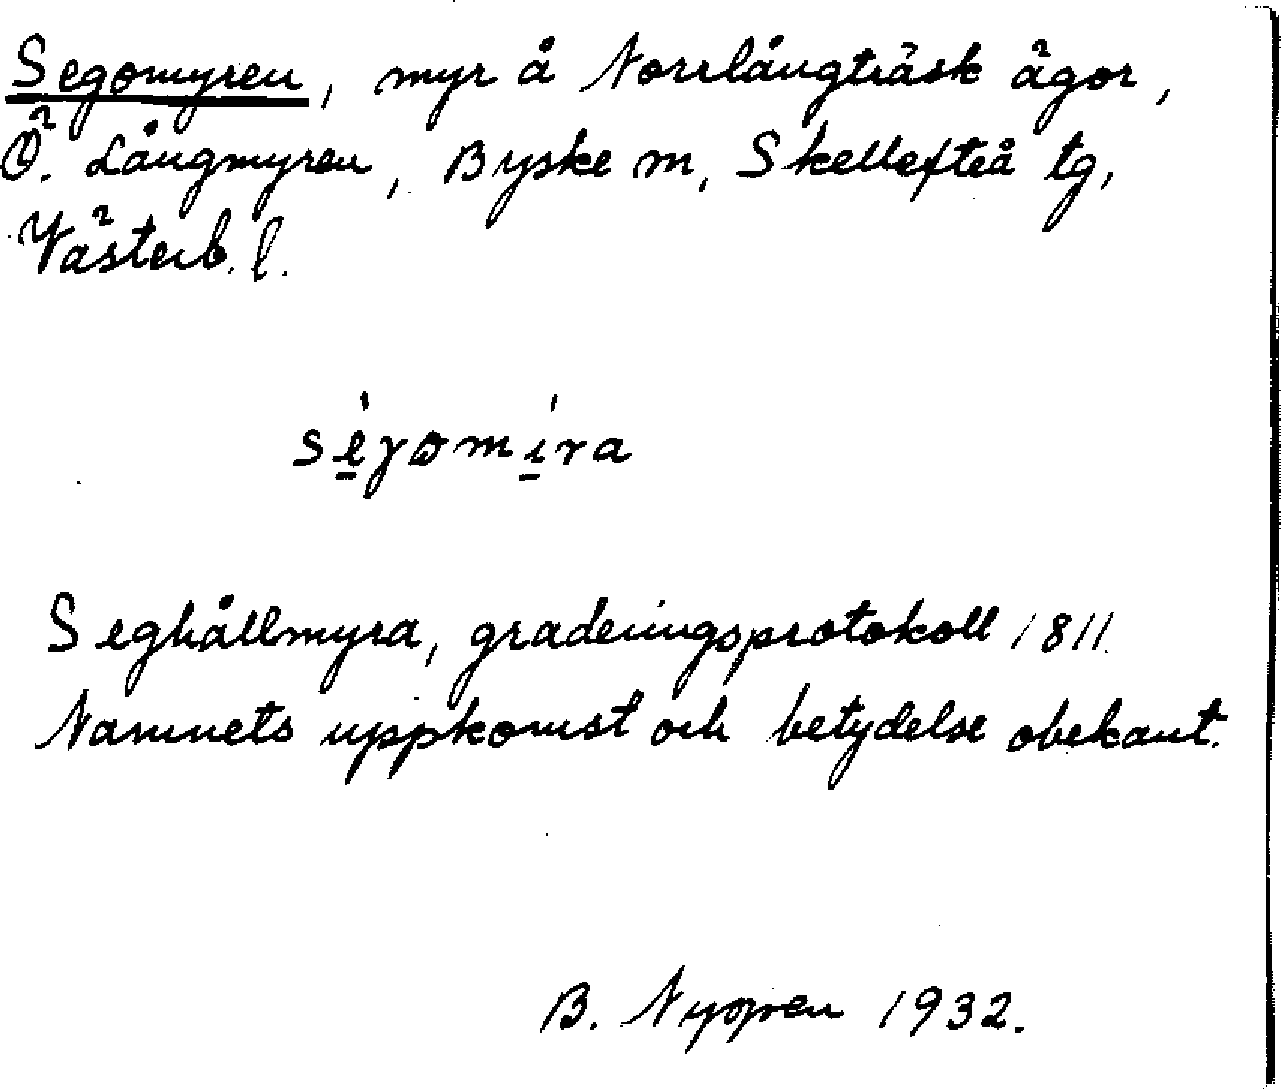 Segomyren, myr å Norrlångträsk ägor,
Ö. Långmyren, Byske sn, Skellefteå tg,
Västerb. l.
segomira
Seghållmyra, graderingsprotokoll 1811.
Namnets uppkomst och betydelse obekant.
B. Nygren 1932.